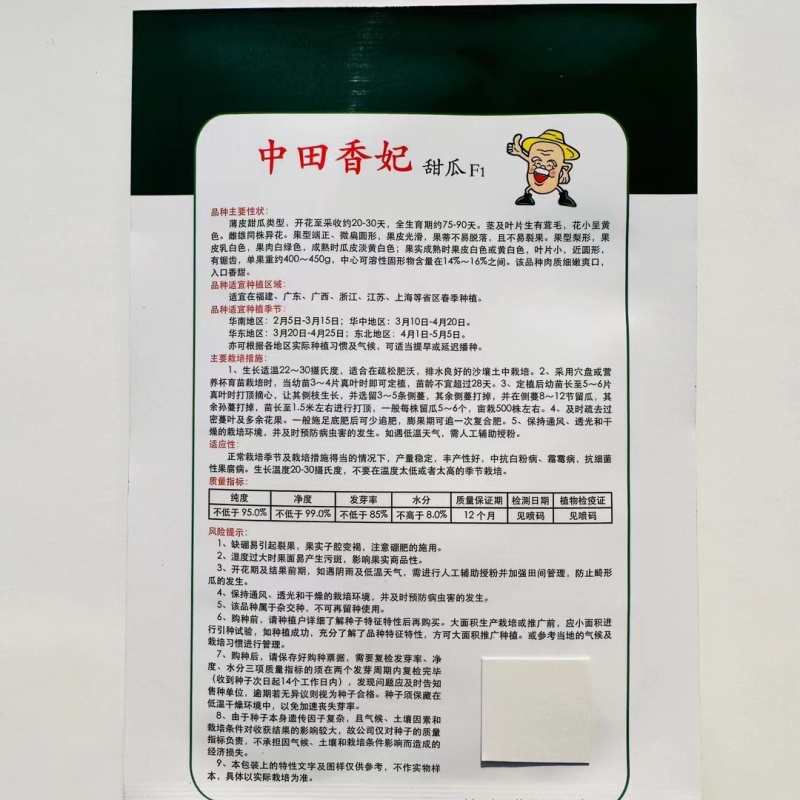 中田香妃 甜瓜F1
品种主要性状：
薄皮甜瓜类型，开花至采收约20-30天，全生育期约75-90天。茎及叶片生有茸毛，花小呈黄
色。雌雄同株异花。果型端正、微扁圆形，果皮光滑，果蒂不易脱落，且不易裂果。果型梨形，果
皮乳白色，果肉白绿色，成熟时瓜皮淡黄白色；果实成熟时果皮白色或黄白色，叶片小，近圆形，
有锯齿，单果重约400～450g，中心可溶性固形物含量在14%～16%之间。该品种肉质细嫩爽口，
入口香甜。
品种适宜种植区域：
适宜在福建、广东、广西、浙江、江苏、上海等省区春季种植。
品种适宜种植季节：
华南地区：2月5日-3月15日；华中地区：3月10日-4月20日。
华东地区：3月20日-4月25日；东北地区：4月1日-5月5日。
亦可根据各地区实际种植习惯及气候，可适当提早或延迟播种。
主要栽培措施：
1、生长适温22～30摄氏度，适合在疏松肥沃，排水良好的沙壤土中栽培。2、采用穴盘或营
养杯育苗栽培时，当幼苗3～4片真叶时即可定植，苗龄不宜超过28天。3、定植后幼苗长至5～6片
真叶时打顶摘心，让其侧枝生长，并选留3～5条侧蔓，其余侧蔓打掉，并在侧蔓8～12节留瓜，其
余孙蔓打掉，苗长至1.5米左右进行打顶，一般每株留瓜5～6个，亩栽500株左右。4、及时疏去过
密蔓叶及多余花果。一般施足底肥后可少追肥，膨果期可追一次复合肥。5、保持通风、透光和干
燥的栽培环境，并及时预防病虫害的发生。如遇低温天气，需人工辅助授粉。
适应性：
正常栽培季节及栽培措施得当的情况下，产量稳定，丰产性好，中抗白粉病、霜霉病，抗细菌
性果腐病。生长温度20-30摄氏度，不要在温度太低或者太高的季节栽培。
质量指标：
纯度 净度 发芽率 水分 质量保证期 检测日期 植物检疫证
不低于 95.0% 不低于 99.0% 不低于 85% 不高于 8.0% 12 个月 见喷码 见喷码
风险提示：
1、缺硼易引起裂果，果实子腔变褐，注意硼肥的施用。
2、湿度过大时果面易产生污斑，影响果实商品性。
3、开花期及结果前期，如遇阴雨及低温天气，需进行人工辅助授粉并加强田间管理，防止畸形
瓜的发生。
4、保持通风、透光和干燥的栽培环境，并及时预防病虫害的发生。
5、该品种属于杂交种，不可再留种使用。
6、购种前，请种植户详细了解种子特征特性后再购买。大面积生产栽培或推广前，应小面积进
行引种试验，如种植成功，充分了解了品种特征特性，方可大面积推广种植。或参考当地的气候及
栽培习惯进行管理。
7、购种后，请保存好购种票据，需要复检发芽率、净
度、水分三项质量指标的须在两个发芽周期内复检完毕
（收到种子次日起14个工作日内），发现问题应及时告知
售种单位，逾期若无异议则视为种子合格。种子须保藏在
低温干燥环境中，以免加速丧失芽率。
8、由于种子本身遗传因子复杂，且气候、土壤因素和
栽培条件对收获结果的影响较大，故公司仅对种子的质量
指标负责，不承担因气候、土壤和栽培条件影响而造成的
经济损失。
9、本包装上的特性文字及图样仅供参考，不作实物样
本，具体以实际栽培为准。